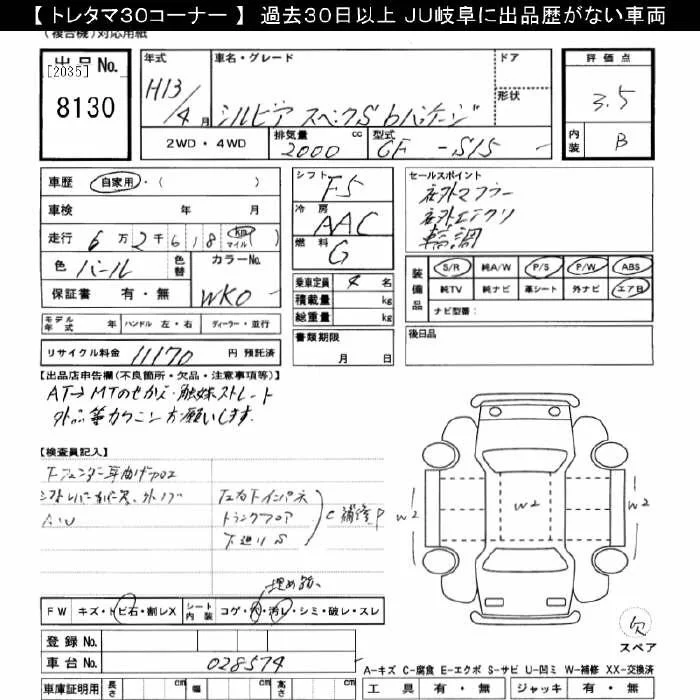 【 トレタマ30コーナー 】 過去30日以上 JU岐阜に出品歴がない車両
(複合機)対応用紙
出品 No.
[2035]
8130
年式
H13/4月
車名・グレード
シルビア スペックS bパッケージ
ドア
形状
2WD・4WD
排気量 2000 cc
型式 GF-S15
評価点
3.5
内装 B
車歴 自家用・( )
車検 年 月
走行 6万2千618 km マイル ( )
色 パール 色替 カラーNo. WK0
保証書 有・無
モデル年式 年 ハンドル 左・右 ディーラー・並行
リサイクル料金 11170 円 預託済
シフト F5
冷房 AAC
燃料 G
乗車定員 4 名
積載量 kg
総重量 kg
書類期限
月 日
セールスポイント
社外マフラー
社外エアクリ
装備品 S/R 純A/W P/S P/W ABS
純TV 純ナビ 革シート 外ナビ エアB
ナビ型番:
後日品
【出品店申告欄(不良箇所・欠品・注意事項等)】
AT→MTのせかえ・触媒ストレート
外品等カクニンお願いします。
【検査員記入】
A・U
トランクフロア
下廻りS
C補修P
埋め
FW キズ・トビ石・割レX シート内装 コゲ・穴・汚レ・シミ・破レ・スレ
登録 No.
車台 No. 028574
車庫証明用 長さ cm 幅 cm 高さ cm
W2
W2
W2
欠
スペア
A-キズ C-腐食 E-エクボ S-サビ U-凹ミ W-補修 XX-交換済
工具 有・無 ジャッキ 有・無